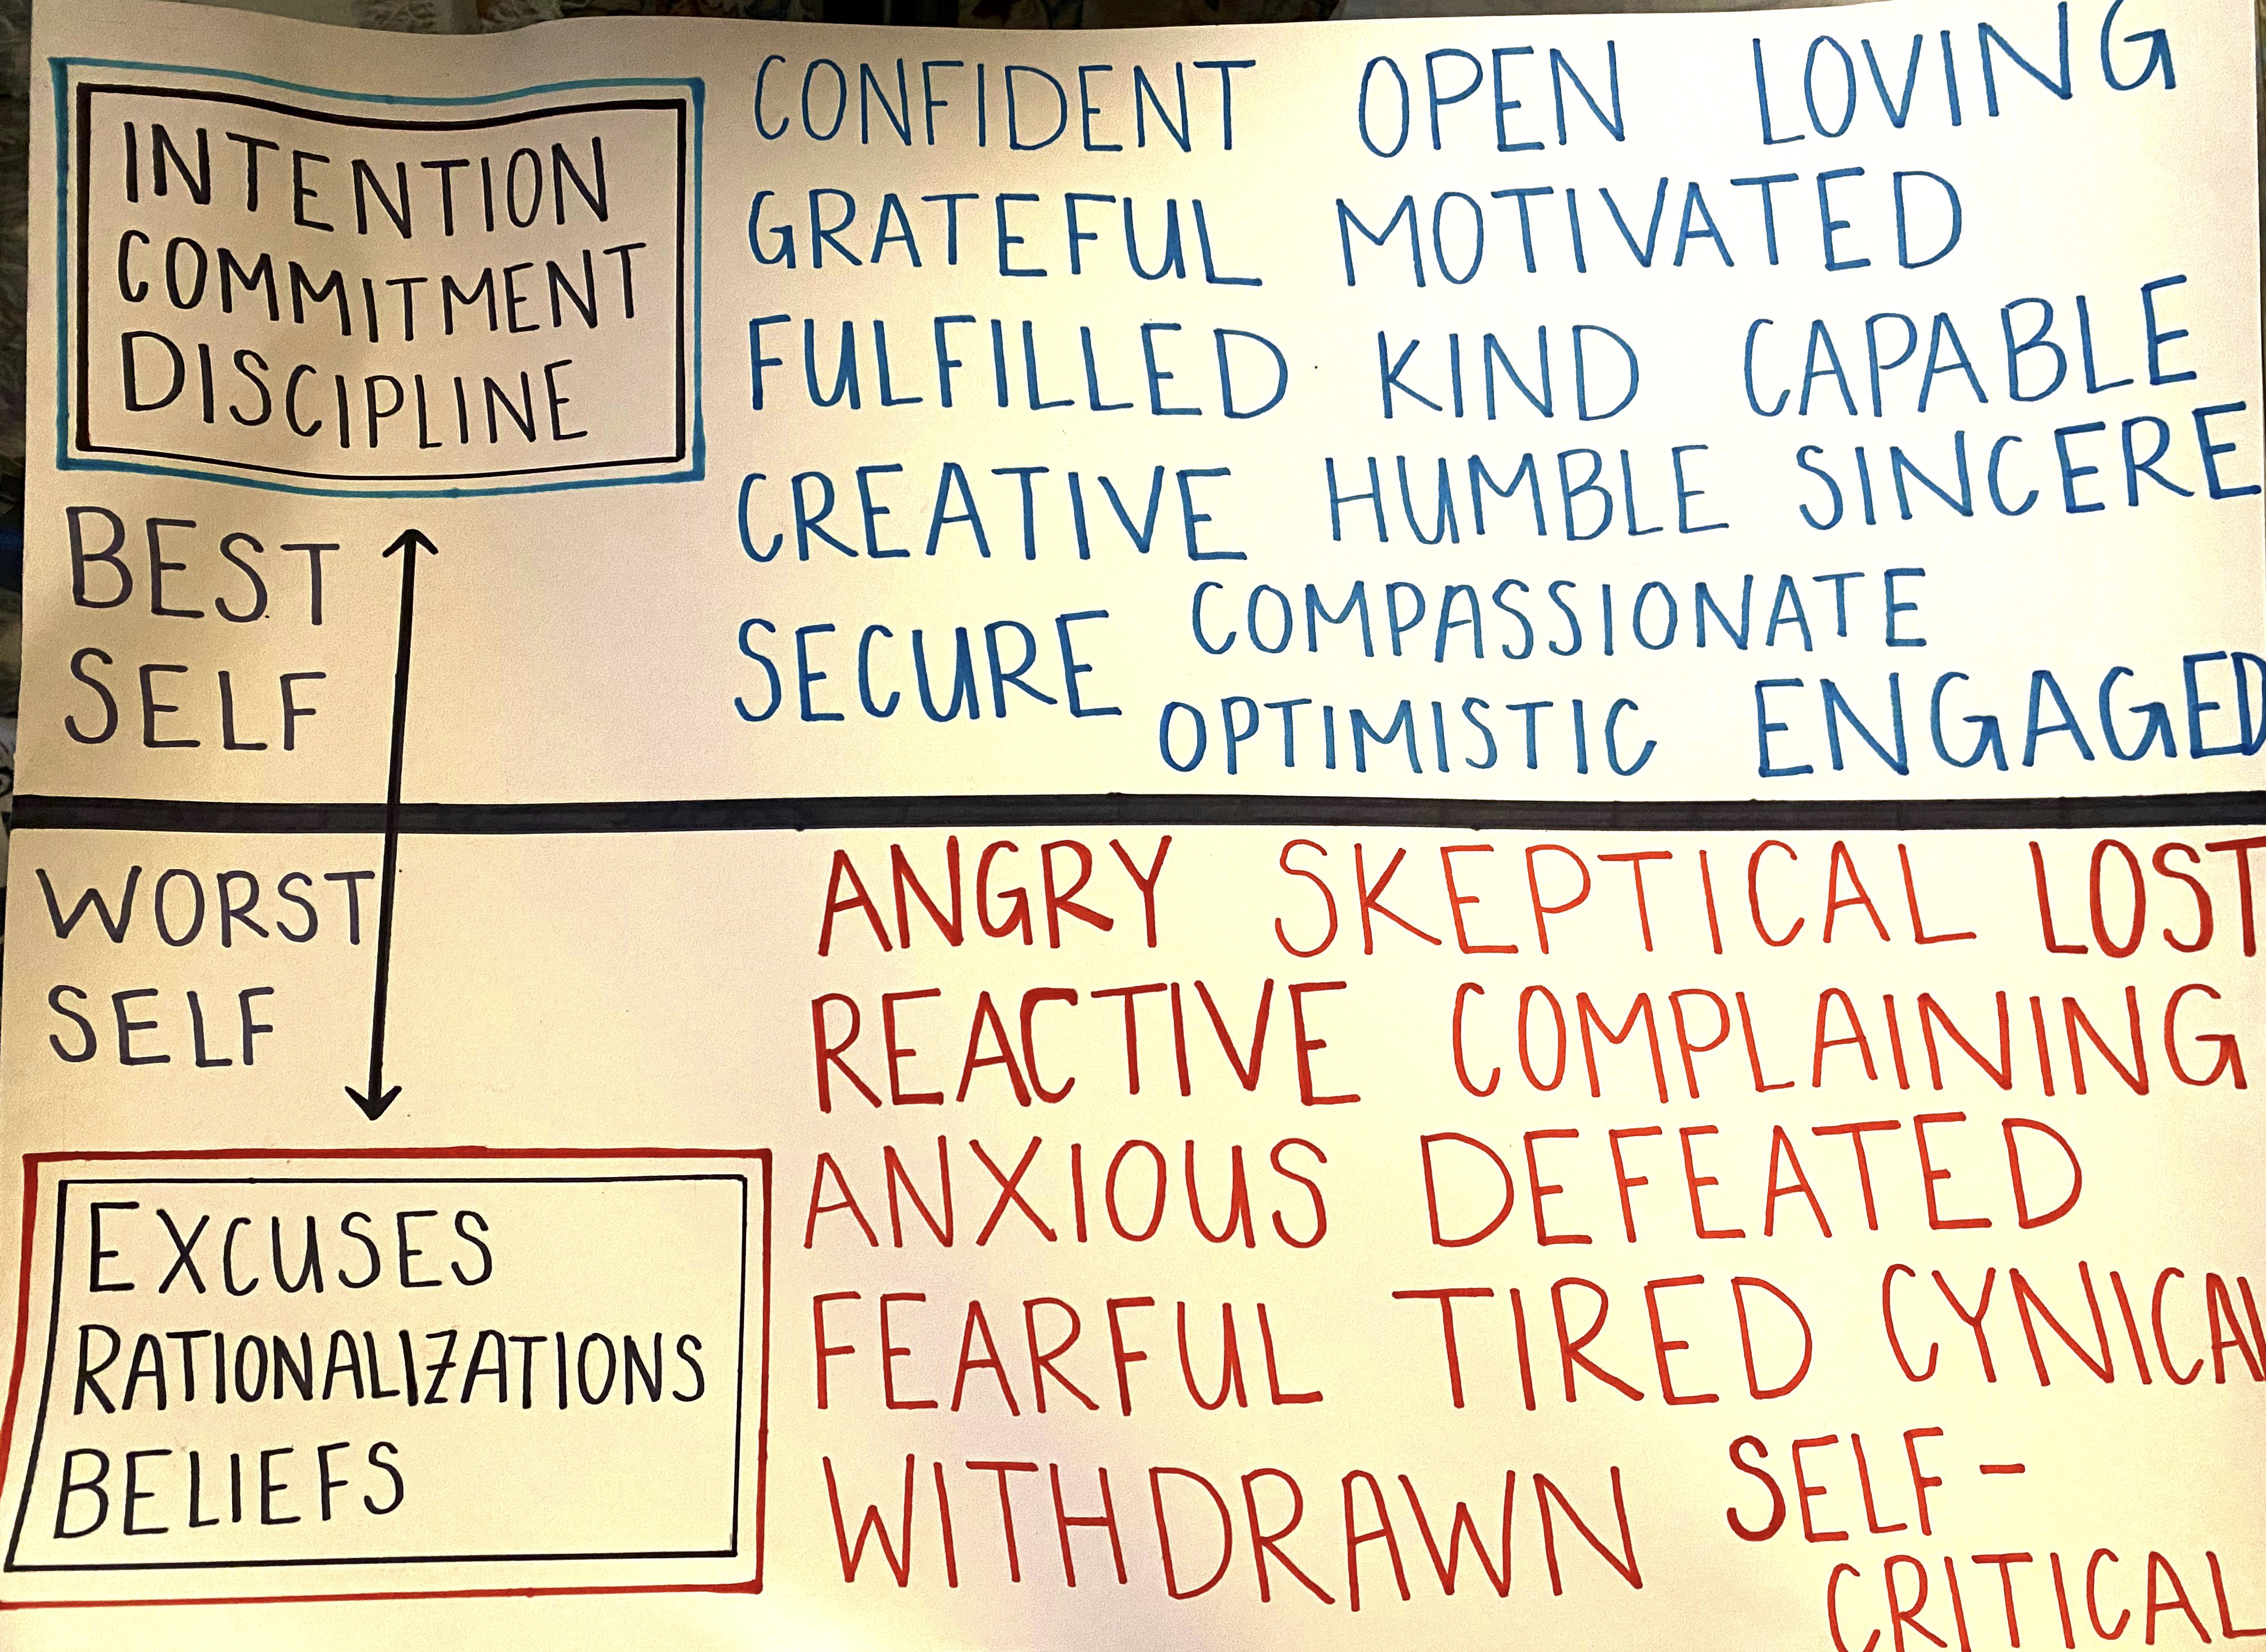 INTENTION
COMMITMENT
DISCIPLINE
BEST
SELF
CONFIDENT OPEN LOVING
GRATEFUL MOTIVATED
FULFILLED KIND CAPABLE
CREATIVE HUMBLE SINCERE
SECURE COMPASSIONATE
OPTIMISTIC ENGAGED
WORST
SELF
EXCUSES
RATIONALIZATIONS
BELIEFS
ANGRY SKEPTICAL LOST
REACTIVE COMPLAINING
ANXIOUS DEFEATED
FEARFUL TIRED CYNICAL
WITHDRAWN SELF-
CRITICAL